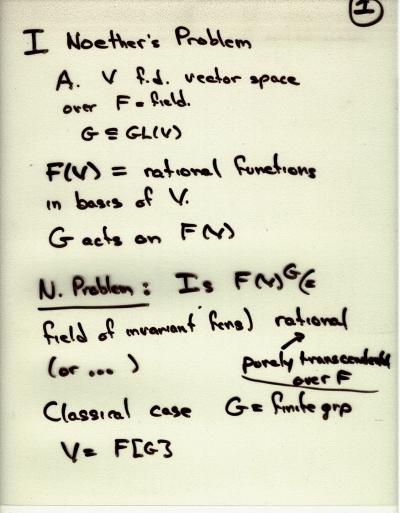 1
I Noether's Problem
A. V f.d. vector space
over F = field.
G ⊆ GL(V)
F(V) = rational functions
in basis of V.
G acts on F(V)
N. Problem: Is F(V)^G (=
field of invariant fcns) rational
(or ...) purely transcendental
over F
Classical case G = finite grp
V = F[G]